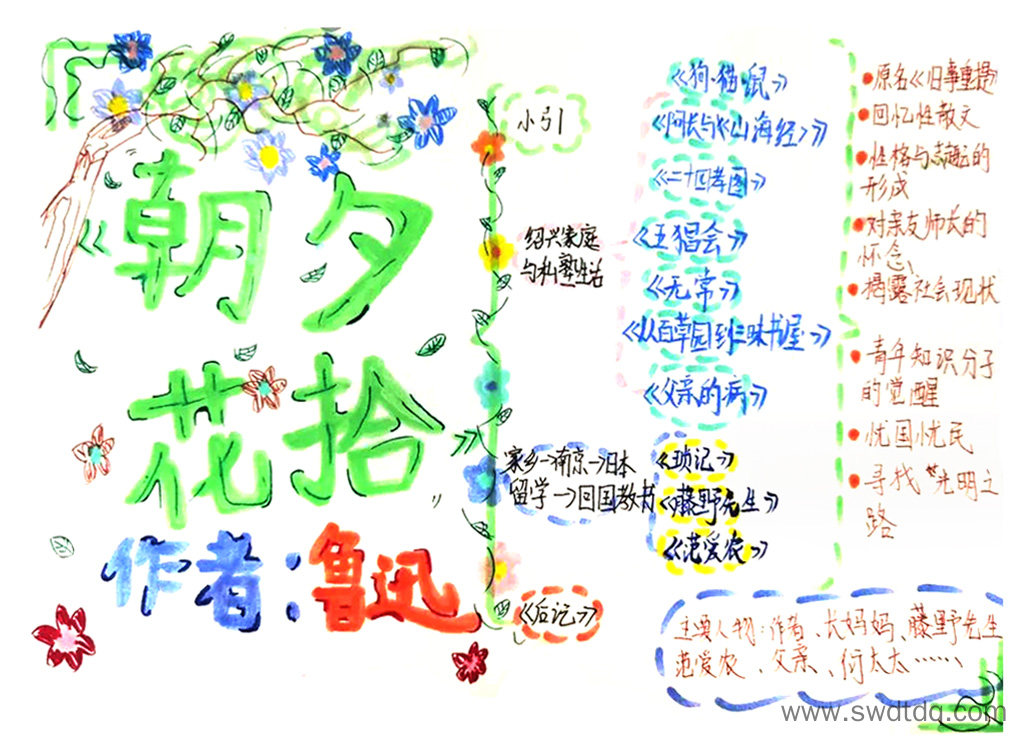 《朝夕
花拾》
作者:鲁迅
小引
绍兴家庭
与私塾生活
家乡→南京→日本
留学→回国教书
《后记》
《狗·猫·鼠》
《阿长与《山海经》》
《二十四孝图》
《五猖会》
《无常》
《从百草园到三味书屋》
《父亲的病》
《琐记》
《藤野先生》
《范爱农》
原名《旧事重提》
回忆性散文
性格与志趣的
形成
对亲友师长的
怀念、
揭露社会现状
青年知识分子
的觉醒
忧国忧民
寻找“光明之
路
主要人物:作者、长妈妈、藤野先生
范爱农、父亲、衍太太……
www.swdtdq.com